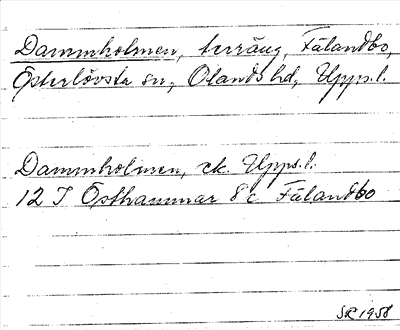 Dammholmen, terräng, Fälandbo,
Österlövsta sn, Olands hd, Upps.l.
Dammholmen, ek. Upps.l.
12 I Östhammar 8 c Fälandbo
SR 1958